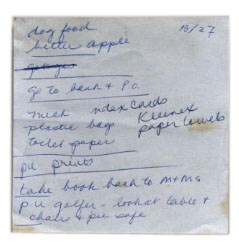 dog food 10/27
bitter apple
go to bank + P.O.
milk index cards Kleenex
plastic bags paper towels
toilet paper
p.u. prints
take book back to M+Ms
p.u. golfer - look at table +
chairs + pie safe